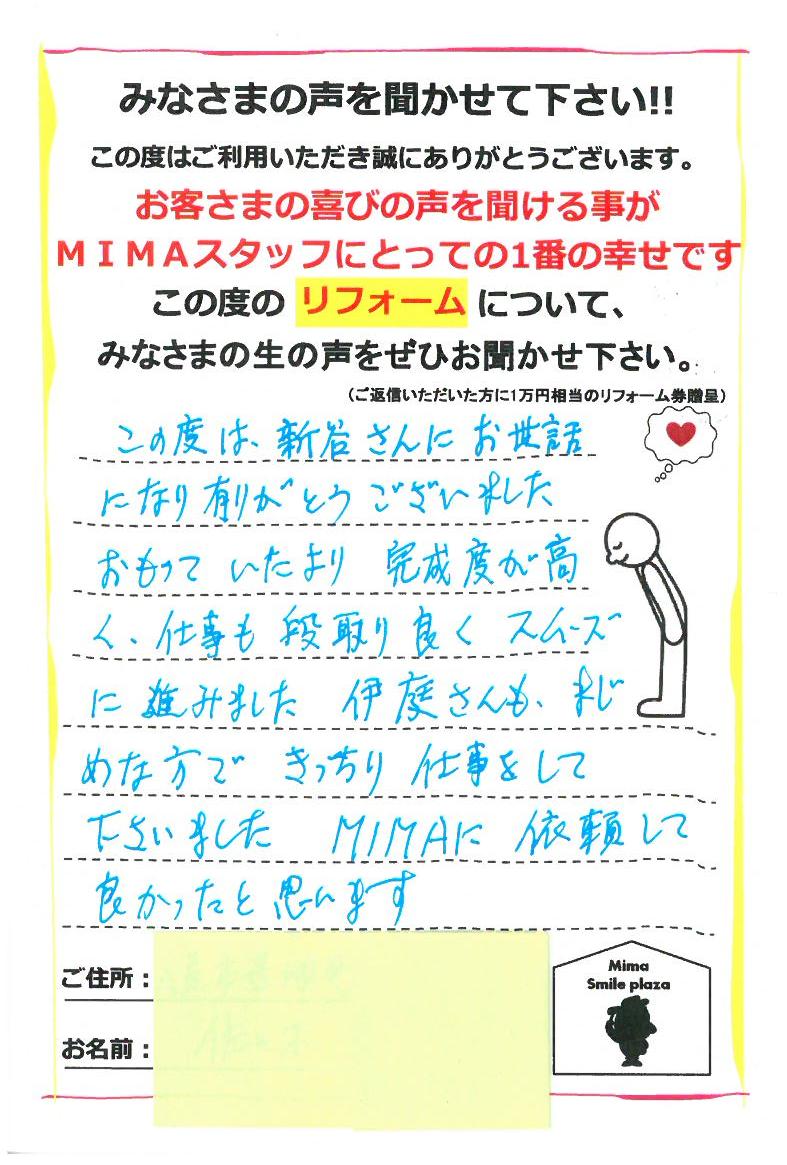 みなさまの声を聞かせて下さい!!
この度はご利用いただき誠にありがとうございます。
お客さまの喜びの声を聞ける事が
MIMAスタッフにとっての1番の幸せです
この度の リフォーム について、
みなさまの生の声をぜひお聞かせ下さい。
(ご返信いただいた方に1万円相当のリフォーム券贈呈)
この度は、新谷さんに お世話
になり有りがとう ございました
おもって いたより 完成度が高
く、仕事も 段取り良く スムーズ
に 進みました 伊庭さんも、まじ
めな方で きっちり 仕事をして
下さいました MIMAに 依頼して
良かったと思います
ご住所：
お名前：
Mima
Smile plaza